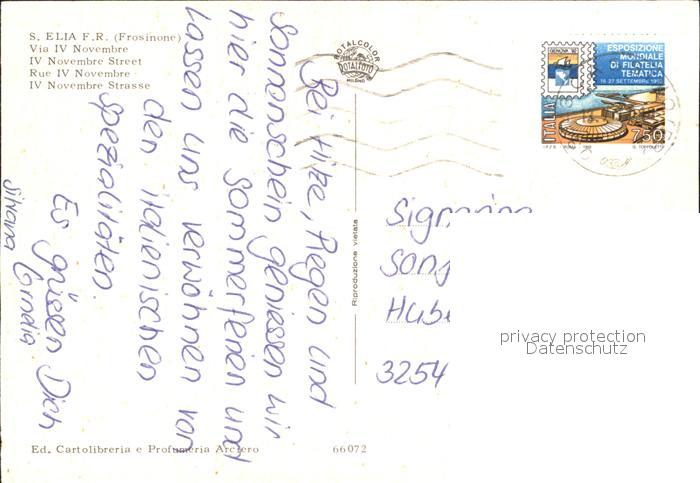 S. ELIA F.R. (Frosinone)
Via IV Novembre
IV Novembre Street
Rue IV Novembre
IV Novembre Strasse
ROTALCOLOR
ROTALFOTO
MILANO
Bei Hitze, Regen und
Sonnenschein geniessen wir
hier die Sommerferien und
lassen uns verwöhnen von
den italienischen
Spezialitäten.
Es grüssen Dich
Silvana
Riproduzione vietata
GENOVA '92
ESPOSIZIONE
MONDIALE
DI FILATELIA
TEMATICA
18-27 SETTEMBRE 1992
ITALIA
750
I.P.Z.S. - ROMA
Signorina
3254
privacy protection
Datenschutz
Ed. Cartolibreria e Profumeria Arciero
66072